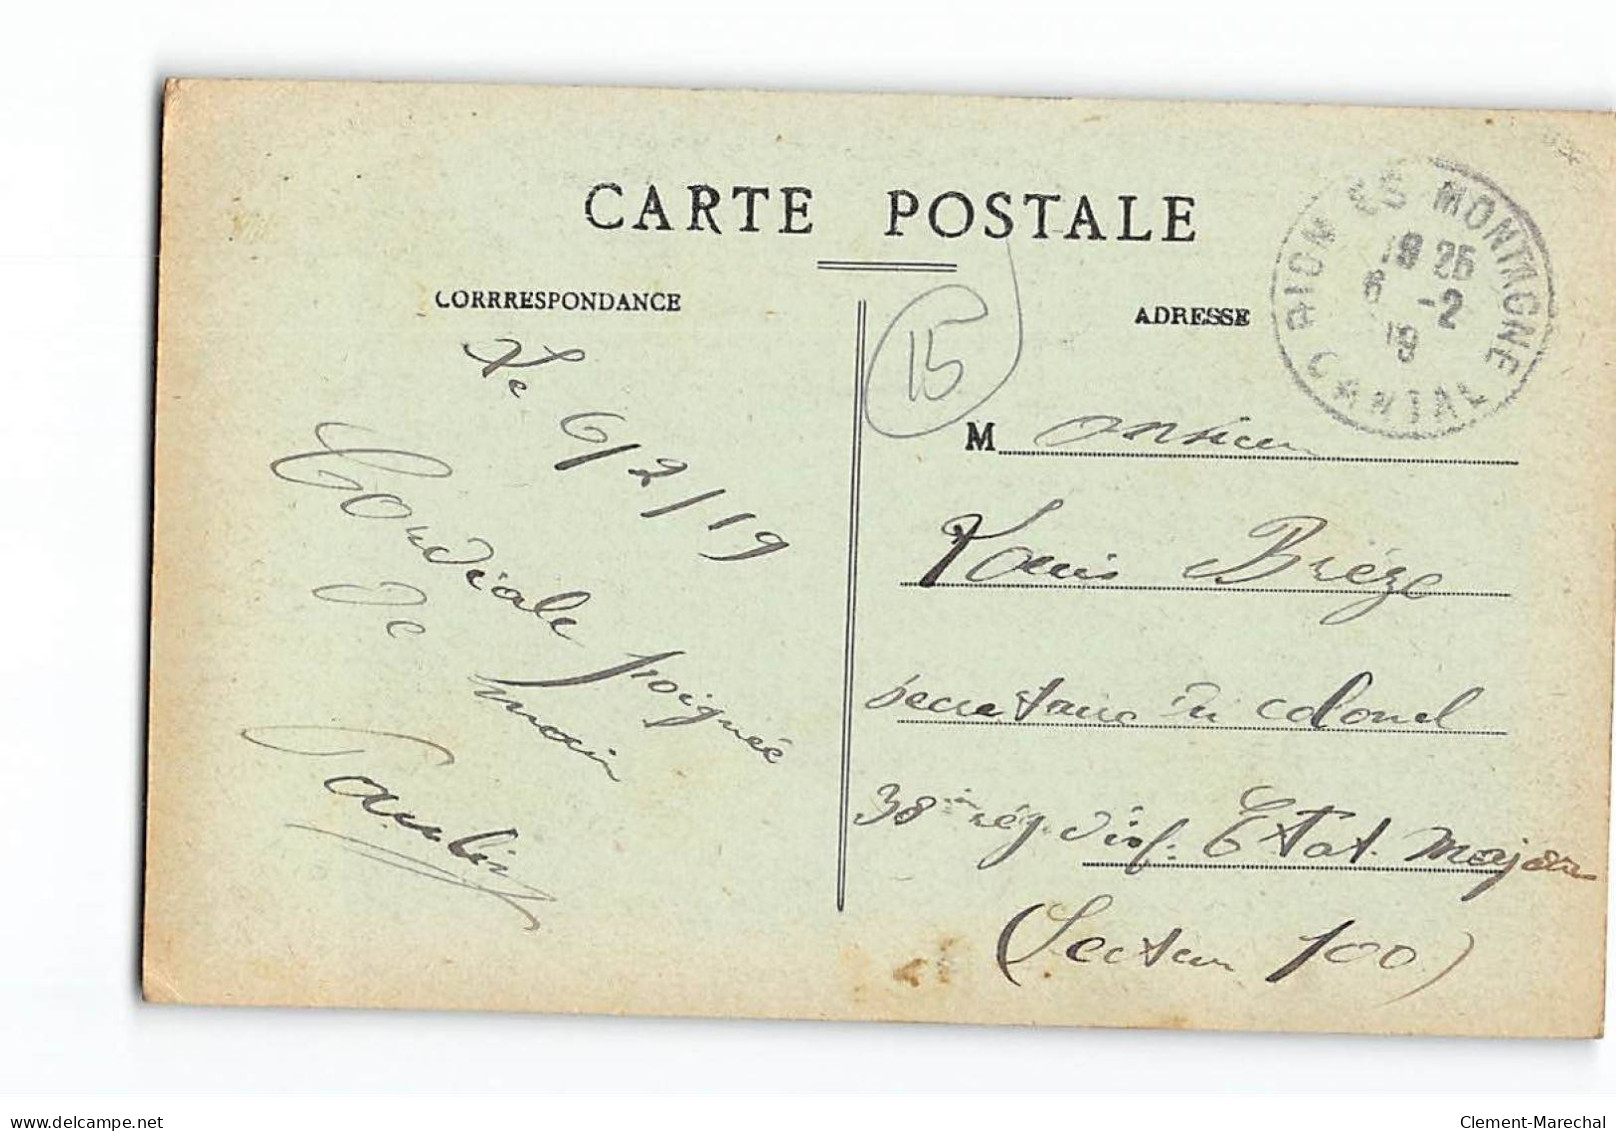 CARTE POSTALE
CORRRESPONDANCE
ADRESSE
RIOM ES MONTAGNE
CANTAL
19 25
6 -2
19
15
Le 6/2/19
Cordiale poignée
de main
Paulin
Monsieur
Louis Brèze
Secretaire du Colonel
38 rég d'inf. Etat. Major
(Secteur 100)
delcampe.net
Clement-Marechal